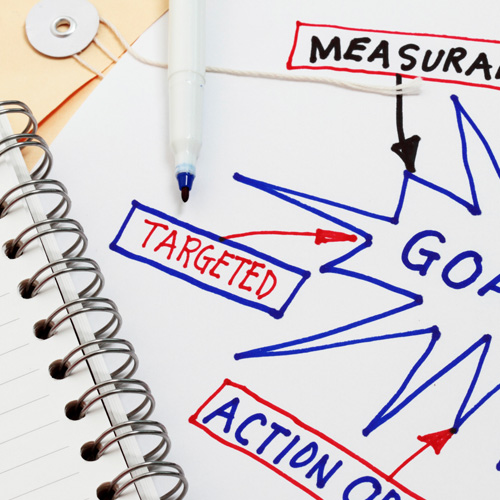 MEASURA
TARGETED
GOA
ACTION O